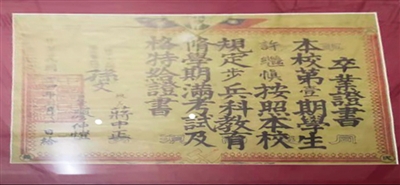 卒業證書
本校第壹期學生
許繼慎按照本校
規定步兵科教育
脩學期滿考試及
格特給證書
孫文
蔣中正